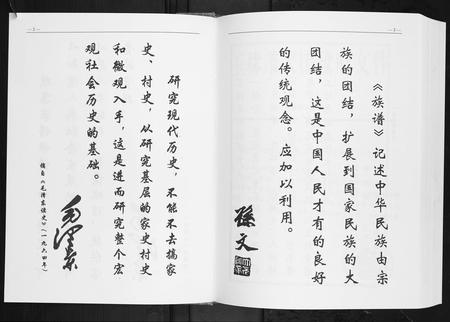 《族谱》记述中华民族由宗
族的团结，扩展到国家民族的大
团结，这是中国人民才有的良好
的传统观念。应加以利用。
孫文
研究现代历史，不能不去搞家
史、村史，从研究基层的家史村史
和微观入手，这是进而研究整个宏
观社会历史的基础。
摘自《毛泽东读史》（一九六四年）
毛泽东